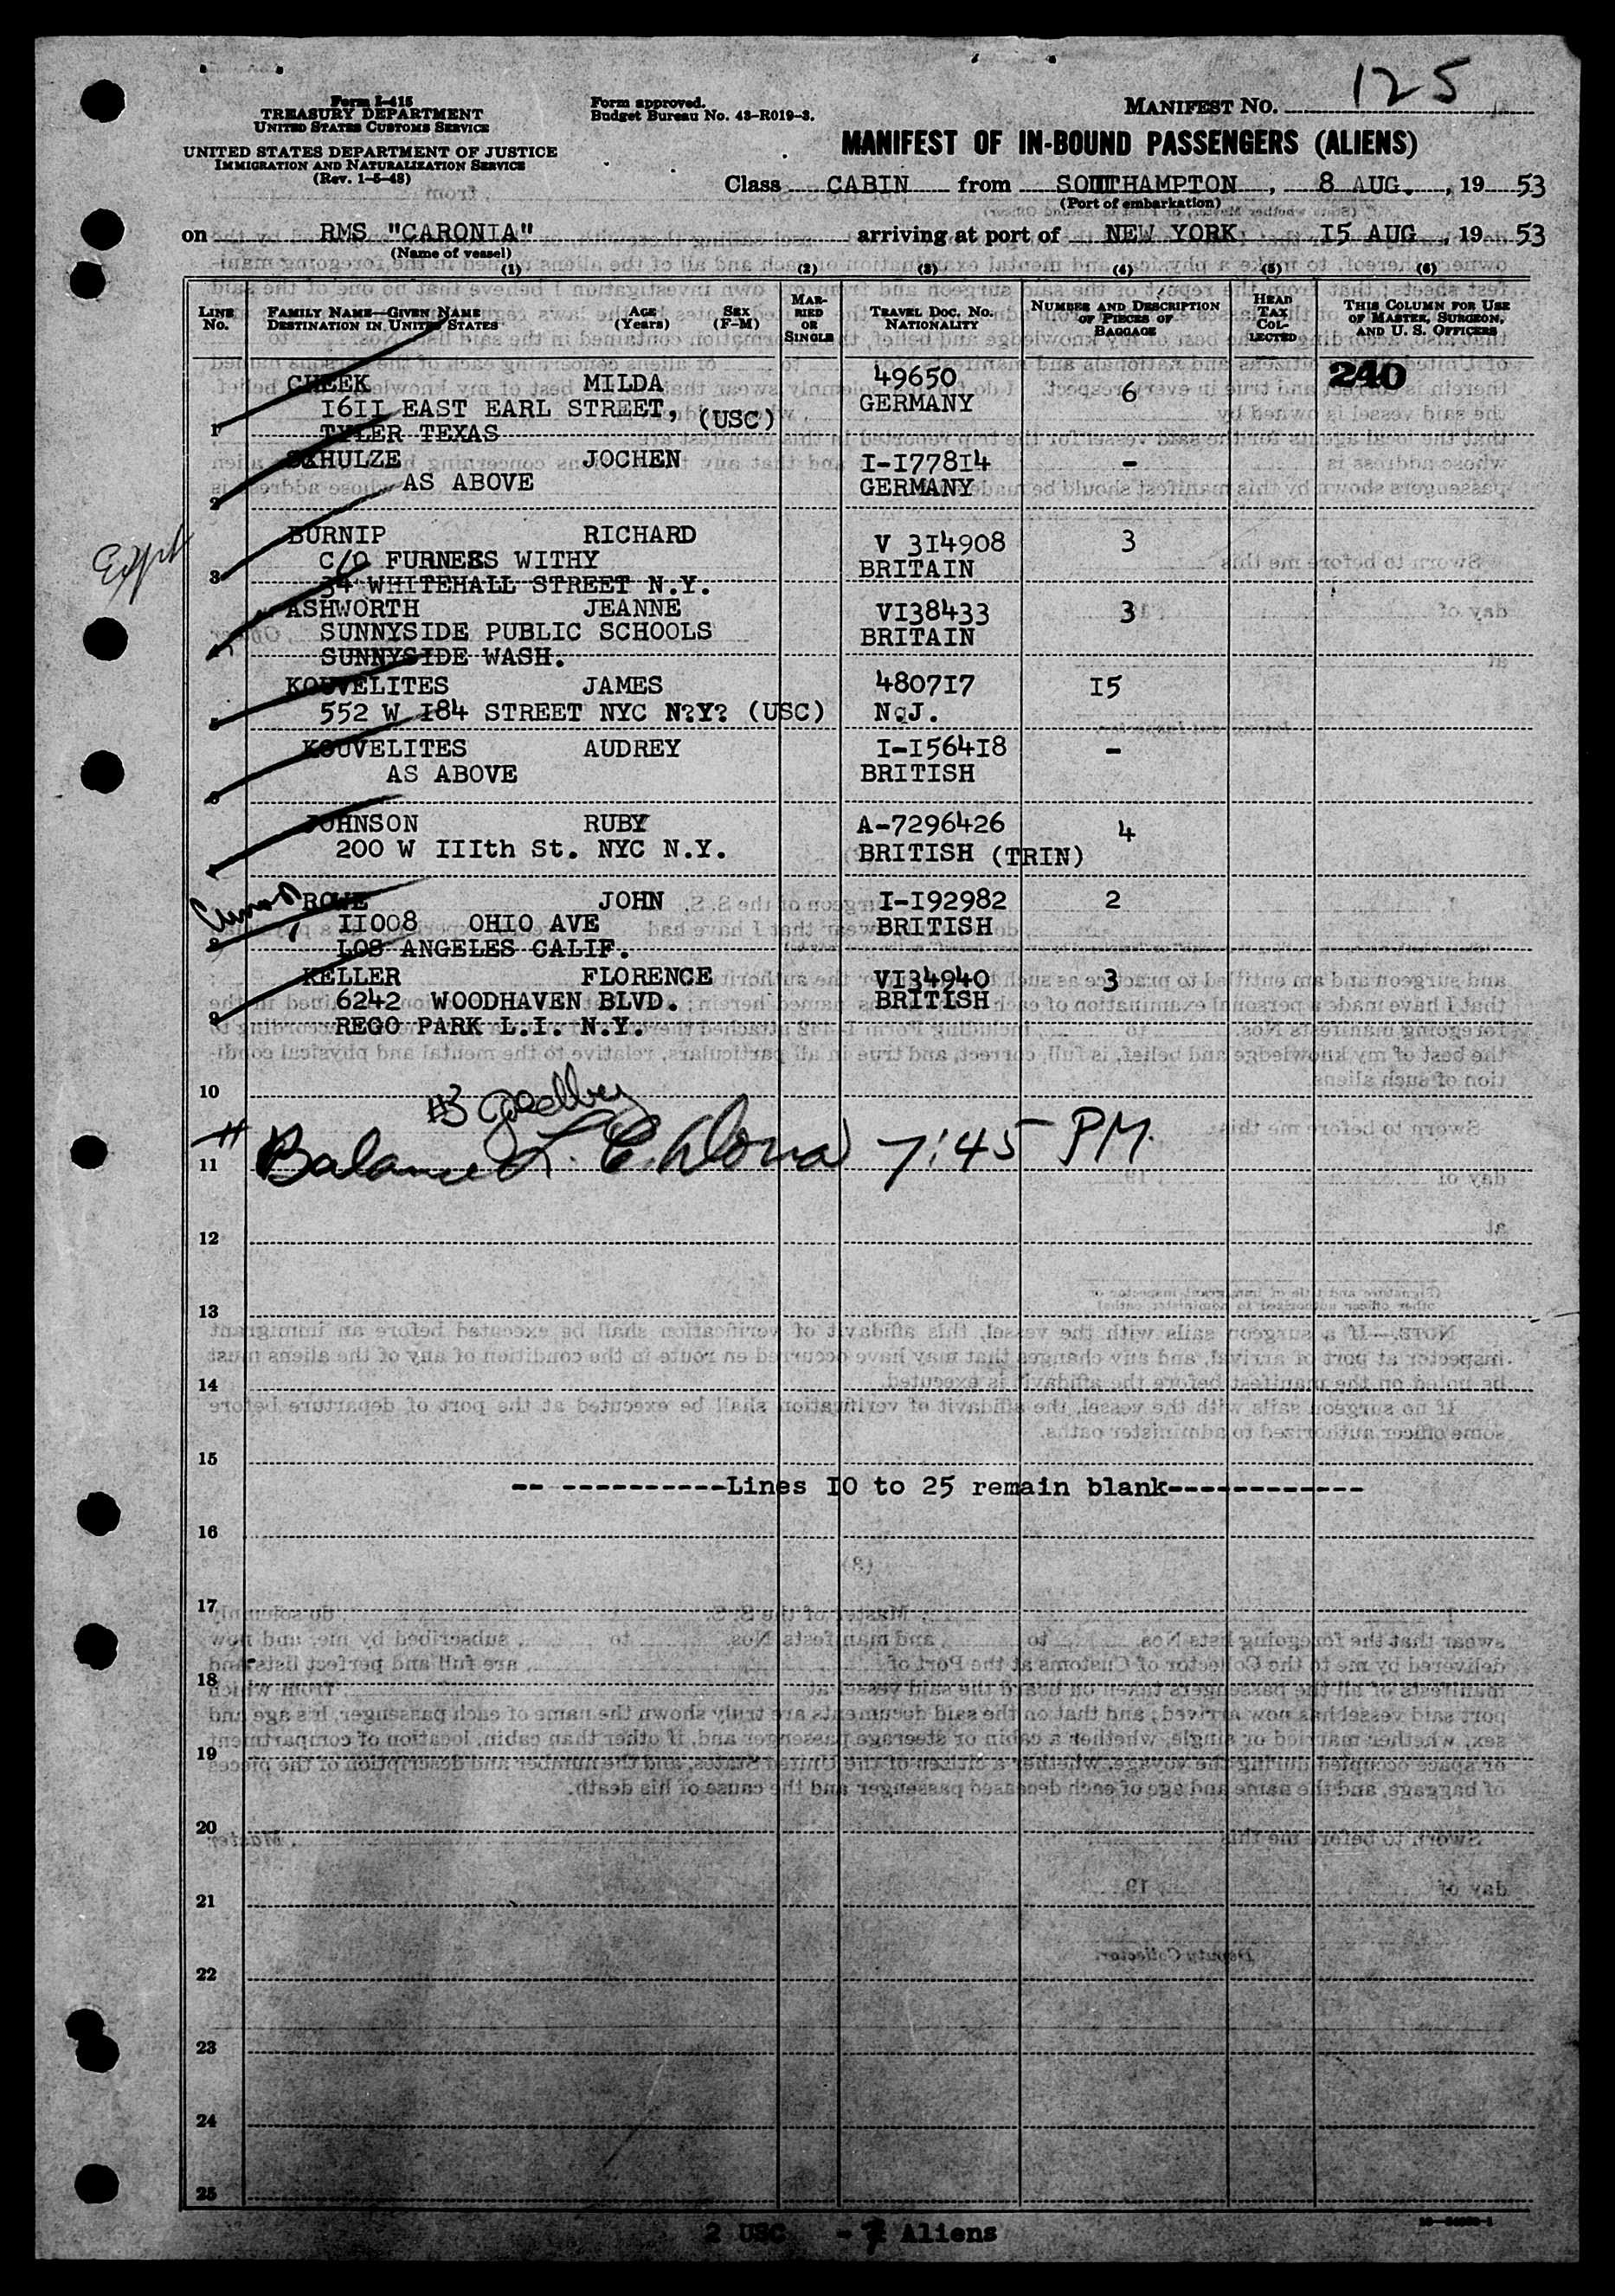 125
Form I-415
TREASURY DEPARTMENT
UNITED STATES CUSTOMS SERVICE
UNITED STATES DEPARTMENT OF JUSTICE
IMMIGRATION AND NATURALIZATION SERVICE
(Rev. 1-5-48)
Form approved.
Budget Bureau No. 43-R019-3.
MANIFEST NO.
MANIFEST OF IN-BOUND PASSENGERS (ALIENS)
Class CABIN from SOUTHAMPTON, 8 AUG., 19 53
(Port of embarkation)
on RMS "CARONIA" arriving at port of NEW YORK 15 AUG, 19 53
(Name of vessel)
(1) (2) (3) (4) (5) (6)
LINE NO. FAMILY NAME—GIVEN NAME DESTINATION IN UNITED STATES AGE (Years) SEX (F-M) MARRIED OR SINGLE TRAVEL DOC. NO. NATIONALITY NUMBER AND DESCRIPTION OF PIECES OF BAGGAGE HEAD TAX COLLECTED THIS COLUMN FOR USE OF MASTER, SURGEON, AND U. S. OFFICERS
CHEEK MILDA 49650 6 240
1611 EAST EARL STREET, (USC) GERMANY
1 TYLER TEXAS
SXHULZE JOCHEN I-177814 -
2 AS ABOVE GERMANY
BURNIP RICHARD V 314908 3
C/O FURNESS WITHY BRITAIN
3 34 WHITEHALL STREET N.Y.
ASHWORTH JEANNE V138433 3
SUNNYSIDE PUBLIC SCHOOLS BRITAIN
SUNNYSIDE WASH.
KOUVELITES JAMES 480717 15
5 552 W 184 STREET NYC N?Y? (USC) N.J.
KOUVELITES AUDREY I-156418 -
6 AS ABOVE BRITISH
JOHNSON RUBY A-7296426 4
200 W 111th St. NYC N.Y. BRITISH (TRIN)
ROWE JOHN I-192982 2
11008 OHIO AVE BRITISH
8 LOS ANGELES CALIF.
KELLER FLORENCE V134940 3
6242 WOODHAVEN BLVD. BRITISH
9 REGO PARK L.I. N.Y.
10
#3
11 Balance 7:45 PM.
12
13
14
15
-- ----------Lines 10 to 25 remain blank------------
16
17
18
19
20
21
22
23
24
25
2 USC - 7 Aliens